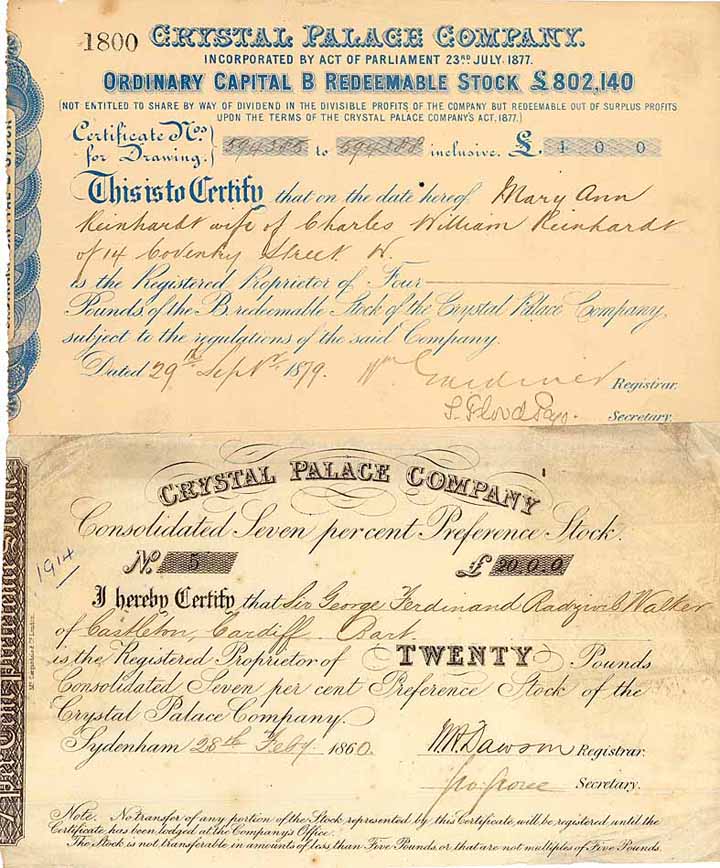 1800 CRYSTAL PALACE COMPANY.
INCORPORATED BY ACT OF PARLIAMENT 23RD JULY 1877.
ORDINARY CAPITAL B REDEEMABLE STOCK £802,140
(NOT ENTITLED TO SHARE BY WAY OF DIVIDEND IN THE DIVISIBLE PROFITS OF THE COMPANY BUT REDEEMABLE OUT OF SURPLUS PROFITS
UPON THE TERMS OF THE CRYSTAL PALACE COMPANY'S ACT, 1877.)
Certificate Nos.
for Drawing. } 594385 to 594388 inclusive. £. 4 0 0
This is to Certify that on the date hereof Mary Ann
Reinhardt wife of Charles William Reinhardt
of 14 Coventry Street W.
is the Registered Proprietor of Four
Pounds of the B redeemable Stock of the Crystal Palace Company,
subject to the regulations of the said Company.
Dated 29th Septr. 1879. Wm Gardiner Registrar.
Secretary.
CRYSTAL PALACE COMPANY
Consolidated Seven per cent Preference Stock.
No. 5 £ 20.0.0
1914
I hereby Certify that Sir George Ferdinand Radzivil Walker
of Castleton, Cardiff Bart
is the Registered Proprietor of TWENTY Pounds
Consolidated Seven per cent Preference Stock of the
Crystal Palace Company.
Sydenham 28th Feby. 1860. Dawson Registrar.
Geo Grove Secretary.
Note. No transfer of any portion of the Stock represented by this Certificate, will be registered until the
Certificate has been lodged at the Company's Office.
The Stock is not transferable in amounts of less than Five Pounds or that are not multiples of Five Pounds.